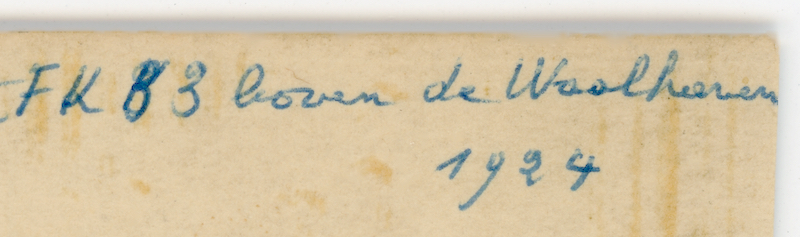 FK 83 boven de Waalhaven
1924